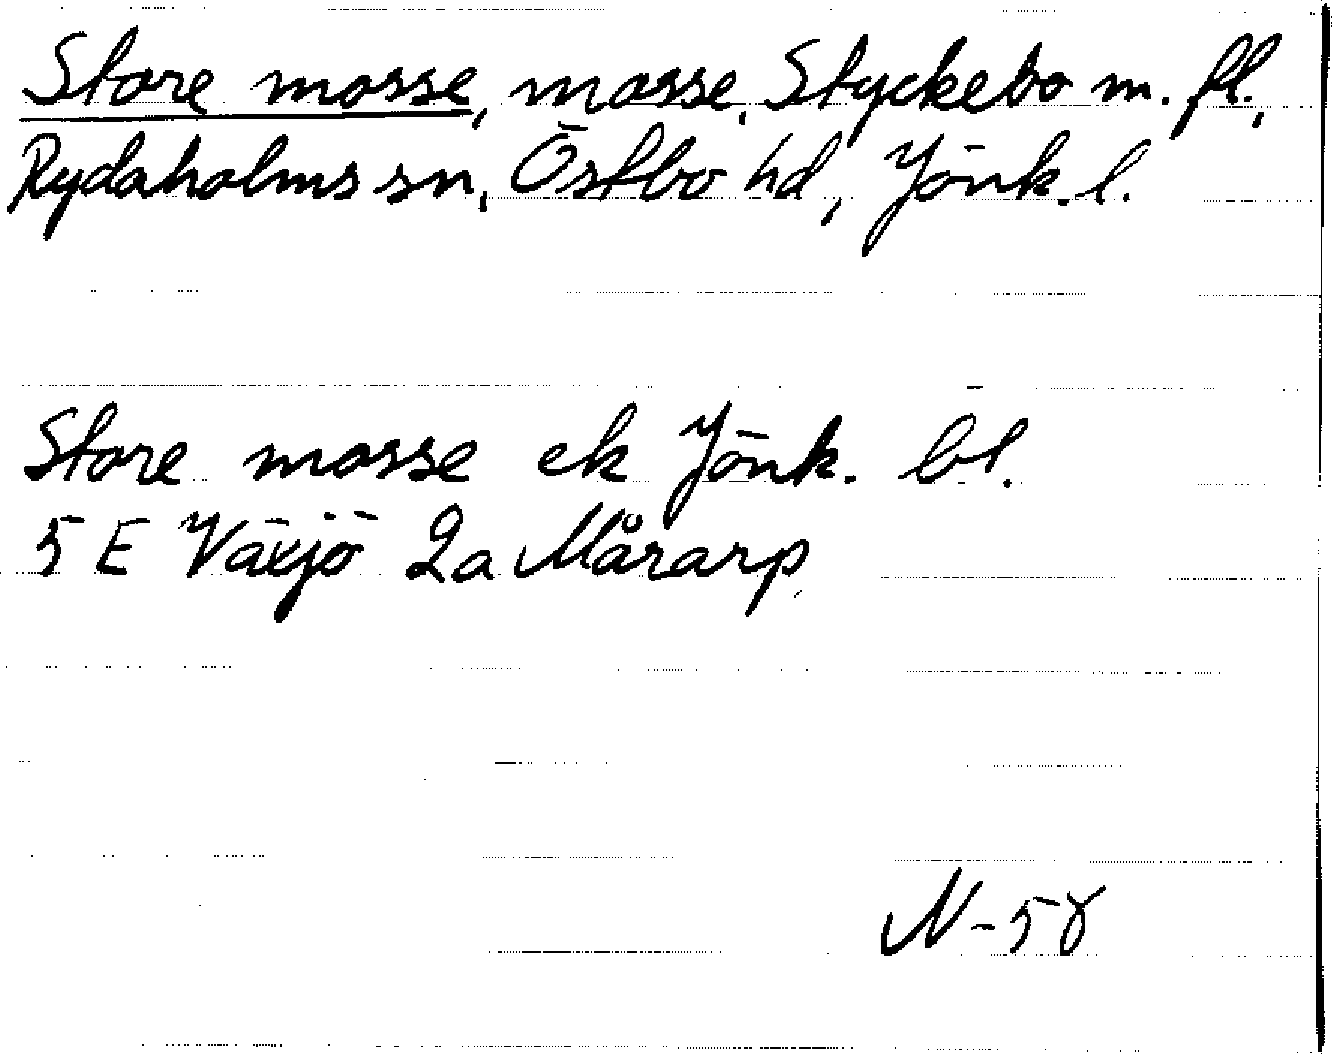 Store mosse, mosse, Styckebo m. fl.,
Rydaholms sn, Östbo hd, Jönk. l.
Store mosse ek Jönk. bl.
5 E Växjö 2a Mårarp
N-58